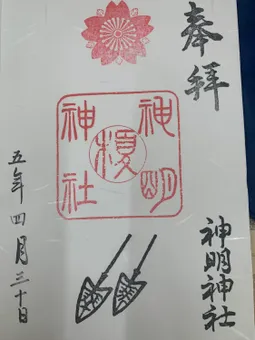 奉拝
神明
神社
榎
神明神社
五年四月三十日